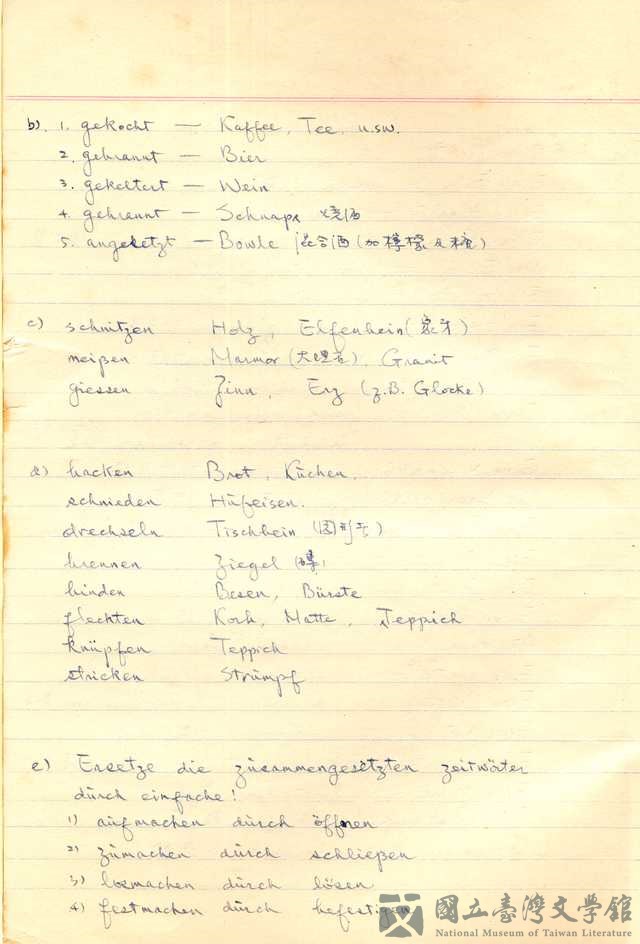 b). 1. gekocht — Kaffee, Tee, u.s.w.
2. gebrannt — Bier
3. gekeltert — Wein
4. gebrannt — Schnaps 燒酒
5. angesetzt — Bowle 混合酒(加檸檬及糖)
c) schnitzen Holz, Elfenbein(象牙)
meißen Marmor (大理石), Granit
giessen Zinn, Erz (z.B. Glocke)
d) backen Brot, Kuchen.
schmieden Hufeisen.
drechseln Tischbein
brennen Ziegel (磚)
binden Besen, Bürste
flechten Korb, Matte, Teppich
knüpfen Teppich
stricken Strumpf
e) Ersetze die zusammengesetzten Zeitwörter
durch einfache!
1) aufmachen durch öffnen
2) zumachen durch schließen
3) losmachen durch lösen
4) festmachen durch befestigen
國立臺灣文學館
National Museum of Taiwan Literature